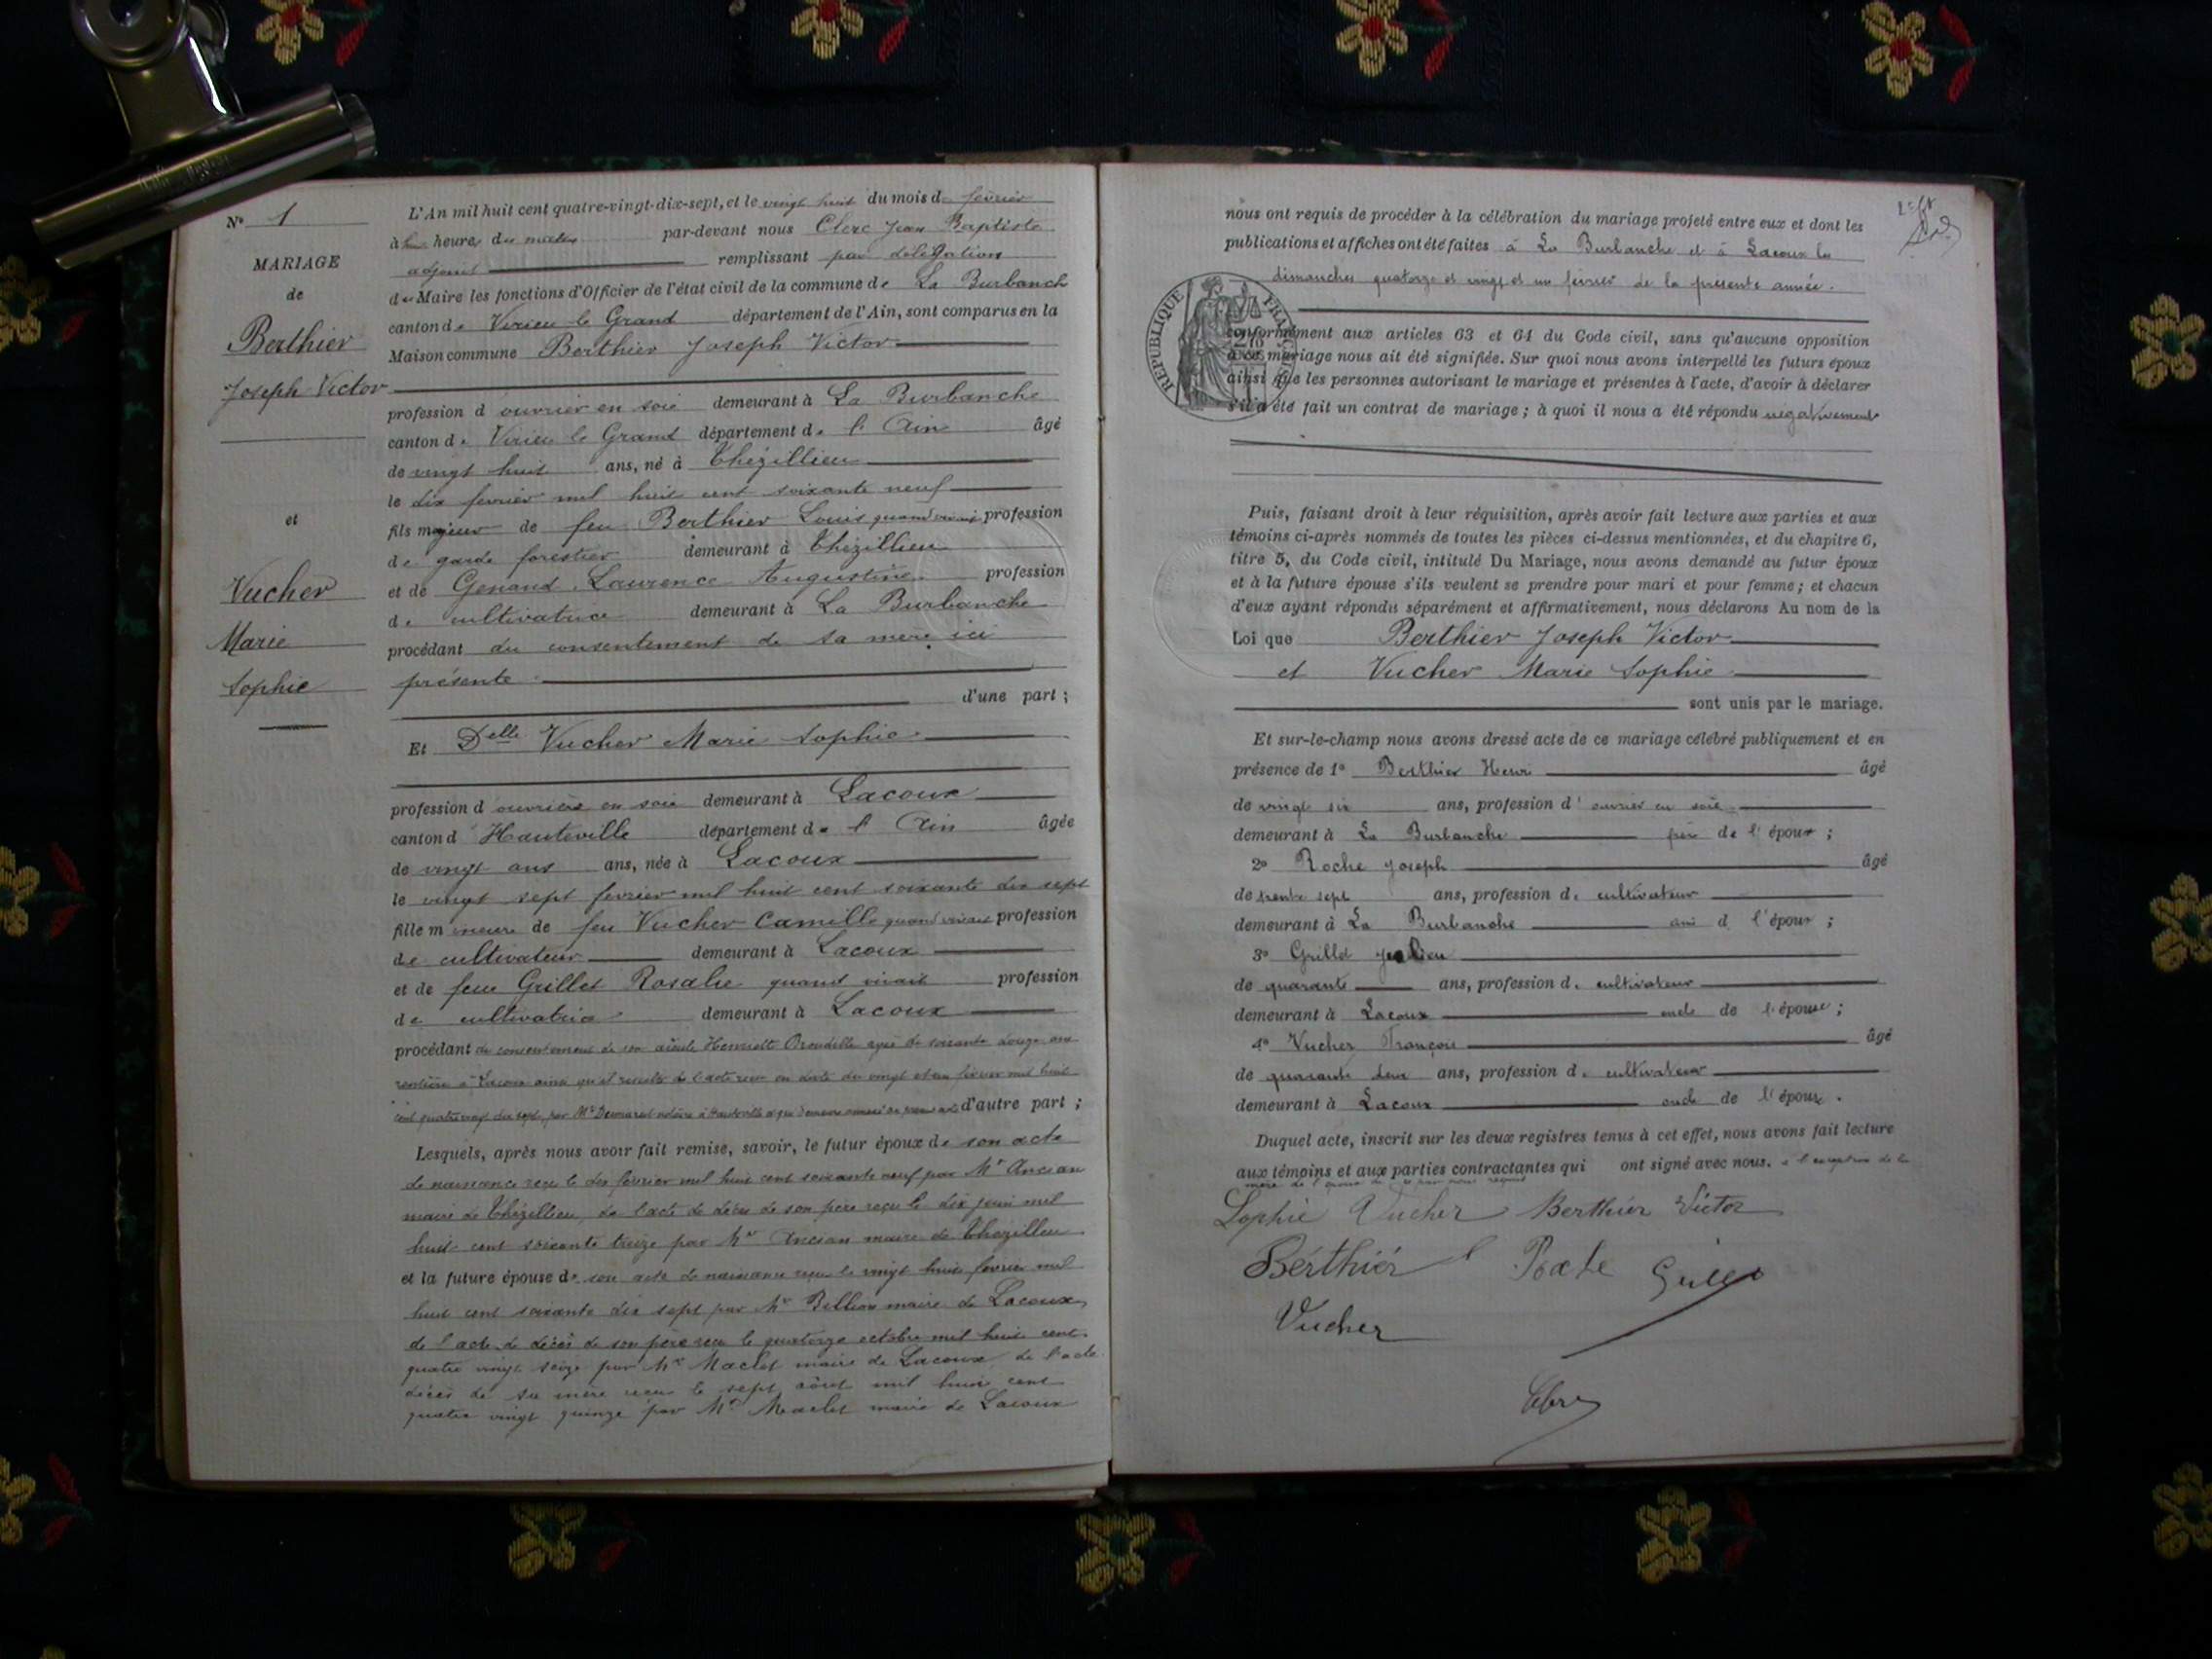 N° 1
MARIAGE
de
Berthier
Joseph Victor
et
Vucher
Marie
Sophie
L'An mil huit cent quatre-vingt-dix-sept, et le vingt huit du mois de février
à heures du matin par-devant nous Clerc Jean Baptiste
adjoint remplissant par délégation
du Maire les fonctions d'Officier de l'état civil de la commune de La Burbanch
canton de Virieu le Grand département de l'Ain, sont comparus en la
Maison commune Berthier Joseph Victor
profession d ouvrier en soie demeurant à La Burbanche
canton de Virieu le Grand département de l'Ain âgé
de vingt huit ans, né à Thézillieu
le dix fevrier mil huit cent soixante neuf
fils majeur de feu Berthier Louis quand vivait profession
de garde forestier demeurant à Thézillieu
et de Genand Laurence Augustine profession
de cultivatrice demeurant à La Burbanche
procédant du consentement de sa mère ici
présente
d'une part ;
Et Delle Vucher Marie Sophie
profession d'ouvrière en soie demeurant à Lacoux
canton d'Hauteville département de l'Ain âgée
de vingt ans ans, née à Lacoux
le vingt sept fevrier mil huit cent soixante dix sept
fille mineure de feu Vucher Camille quand vivait profession
de cultivateur demeurant à Lacoux
et de feue Grillet Rosalie quand vivait profession
de cultivatrice demeurant à Lacoux
procédant du consentement de son aïeule Henriette âgée de soixante douze ans
rentière à Lacoux ainsi qu'il résulte de l'acte reçu en date du vingt et un février mil huit
cent quatre vingt dix sept, par Me notaire à Hauteville d'autre part ;
Lesquels, après nous avoir fait remise, savoir, le futur époux de son acte
de naissance reçu le dix février mil huit cent soixante neuf par Mr Ancian
maire de Thézillieu, de l'acte de décès de son père reçu le dix juin mil
huit cent soixante treize par Mr Ancian maire de Thezillieu
et la future épouse de son acte de naissance reçu le vingt huit fevrier mil
huit cent soixante dix sept par Mr Billion maire de Lacoux,
de l'acte de décès de son père reçu le quatorze octobre mil huit cent
quatre vingt seize par Mr Maclet maire de Lacoux, de l'acte
décès de sa mère reçu le sept août mil huit cent
quatre vingt quinze par Mr Maclet maire de Lacoux
nous ont requis de procéder à la célébration du mariage projeté entre eux et dont les
publications et affiches ont été faites à La Burbanche et à Lacoux les
dimanches quatorze et vingt et un février de la présente année.
RÉPUBLIQUE FRANÇAISE
conformément aux articles 63 et 64 du Code civil, sans qu'aucune opposition
à ce mariage nous ait été signifiée. Sur quoi nous avons interpellé les futurs époux
ainsi que les personnes autorisant le mariage et présentes à l'acte, d'avoir à déclarer
s'il a été fait un contrat de mariage ; à quoi il nous a été répondu négativement
Puis, faisant droit à leur réquisition, après avoir fait lecture aux parties et aux
témoins ci-après nommés de toutes les pièces ci-dessus mentionnées, et du chapitre 6,
titre 5, du Code civil, intitulé Du Mariage, nous avons demandé au futur époux
et à la future épouse s'ils veulent se prendre pour mari et pour femme ; et chacun
d'eux ayant répondu séparément et affirmativement, nous déclarons Au nom de la
Loi que Berthier Joseph Victor
et Vucher Marie Sophie
sont unis par le mariage.
Et sur-le-champ nous avons dressé acte de ce mariage célébré publiquement et en
présence de 1° Berthier Henri âgé
de vingt six ans, profession d'ouvrier en soie
demeurant à La Burbanche de l'époux ;
2° Roche Joseph âgé
de trente sept ans, profession de cultivateur
demeurant à La Burbanche ami d l'époux ;
3° Grillet Julien
de quarante ans, profession de cultivateur
demeurant à Lacoux oncle de l'épouse ;
4° Vucher François âgé
de quarante deux ans, profession de cultivateur
demeurant à Lacoux oncle de l'épouse.
Duquel acte, inscrit sur les deux registres tenus à cet effet, nous avons fait lecture
aux témoins et aux parties contractantes qui ont signé avec nous. à l'exception de la
mère de l'époux
Sophie Vucher Berthier Victor
Berthier
Vucher